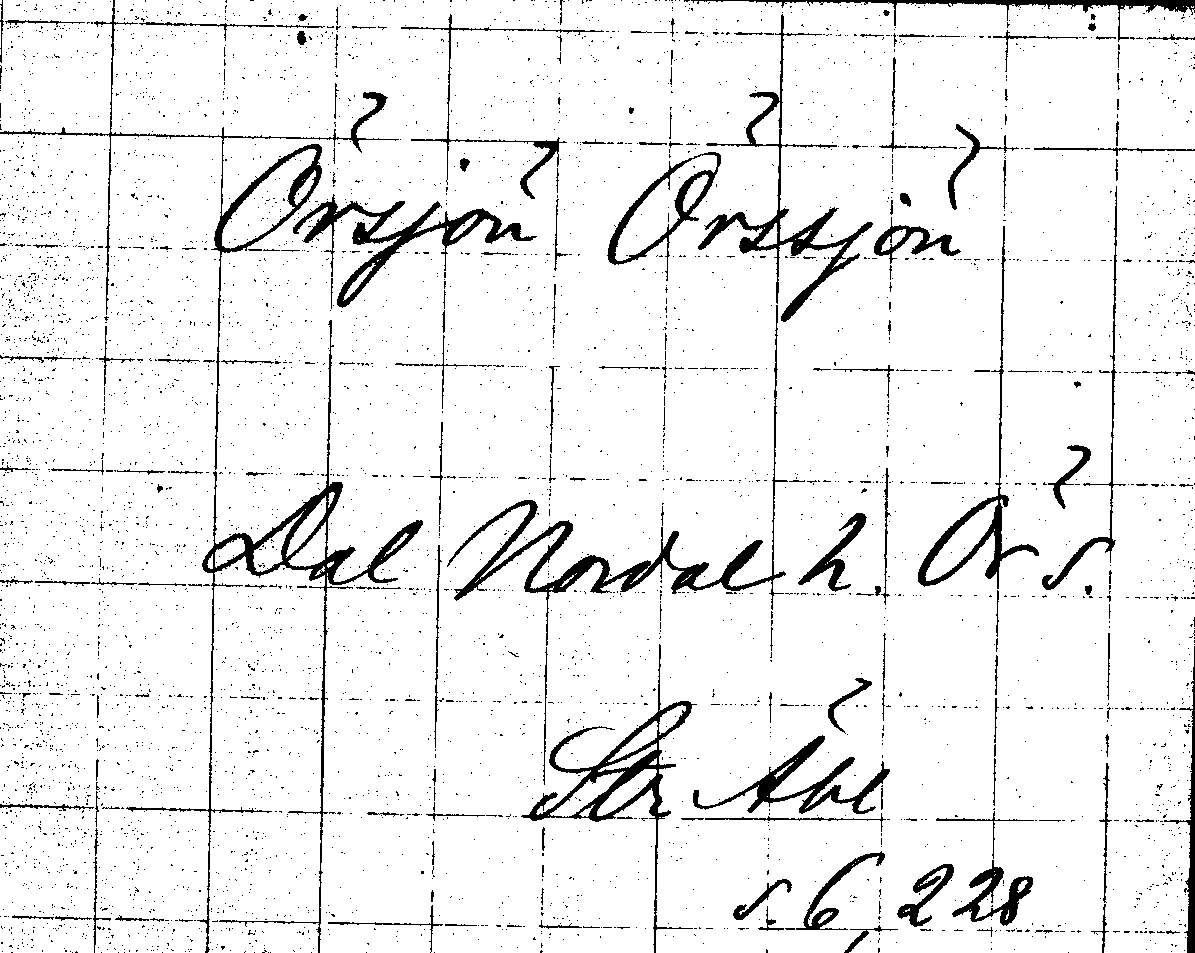 Örsjön Örssjön
Dal Nordal h. Ör s.
Str Åbl
s. 6, 228